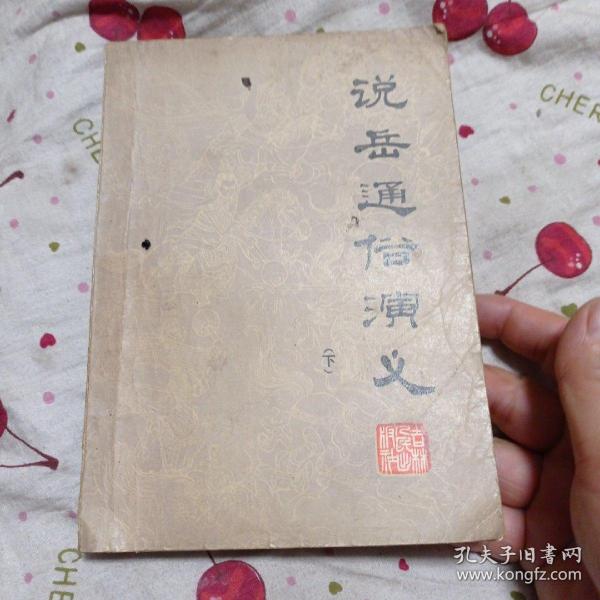 说岳通俗演义
（下）
吉林
人民出
版社
CHERR
CHER
CHE
CHE
孔夫子旧书网
www.kongfz.com